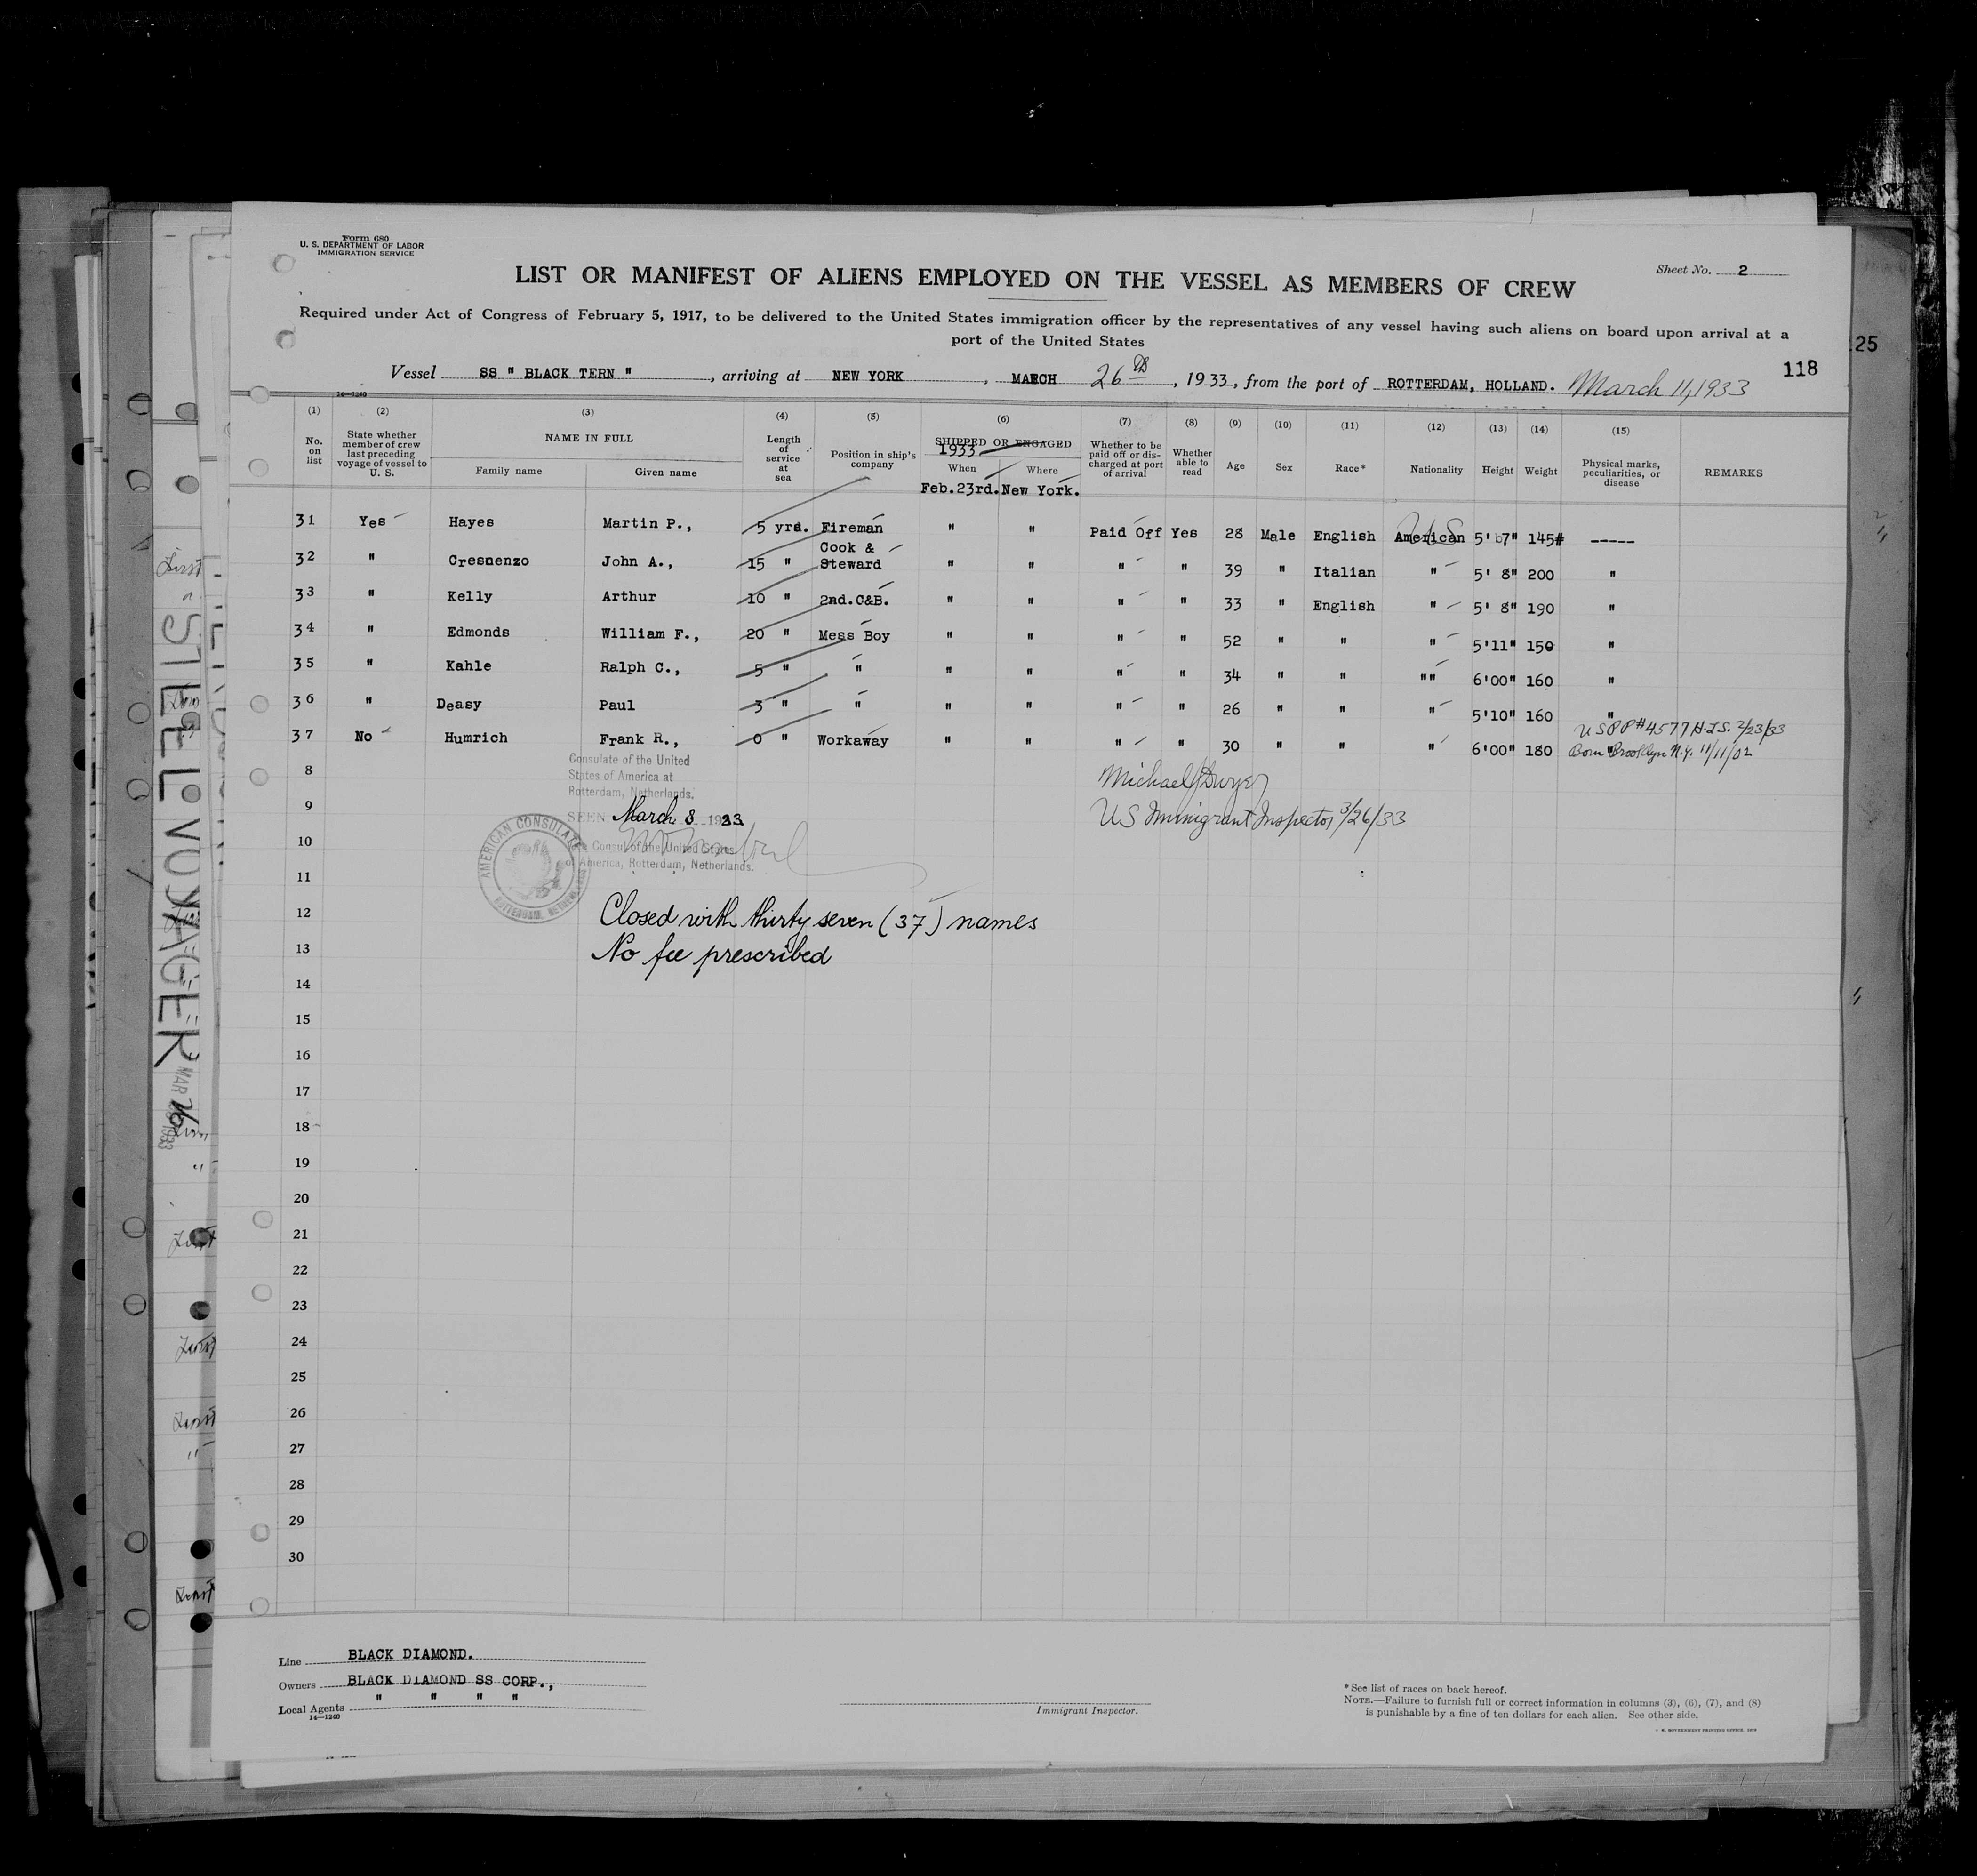 Form 680
U. S. DEPARTMENT OF LABOR
IMMIGRATION SERVICE
Sheet No. 2
LIST OR MANIFEST OF ALIENS EMPLOYED ON THE VESSEL AS MEMBERS OF CREW
Required under Act of Congress of February 5, 1917, to be delivered to the United States immigration officer by the representatives of any vessel having such aliens on board upon arrival at a
port of the United States
25
118
Vessel SS " BLACK TERN ", arriving at NEW YORK, MARCH 26th, 1933, from the port of ROTTERDAM, HOLLAND. March 11, 1933
14—1240
(1) (2) (3) (4) (5) (6) (7) (8) (9) (10) (11) (12) (13) (14) (15)
No. on list
State whether member of crew last preceding voyage of vessel to U. S.
NAME IN FULL
Family name
Given name
Length of service at sea
Position in ship's company
SHIPPED OR ENGAGED
1933
When
Where
Whether to be paid off or discharged at port of arrival
Whether able to read
Age
Sex
Race*
Nationality
Height
Weight
Physical marks, peculiarities, or disease
REMARKS
Feb.23rd. New York.
31 Yes Hayes Martin P., 5 yrs. Fireman " " Paid Off Yes 28 Male English American US 5' 7" 145# -----
32 " Cresnenzo John A., 15 " Cook & Steward " " " " 39 " Italian " 5' 8" 200 "
33 " Kelly Arthur 10 " 2nd.C&B. " " " " 33 " English " 5' 8" 190 "
34 " Edmonds William F., 20 " Mess Boy " " " " 52 " " " 5'11" 150 "
35 " Kahle Ralph C., 5 " " " " " " 34 " " "" 6'00" 160 "
36 " Deasy Paul 3 " " " " " " 26 " " " 5'10" 160 "
37 No Humrich Frank R., 0 " Workaway " " " " 30 " " " 6'00" 180 "
USPP#4577 2/23/33
Born Brooklyn N.Y. 11/11/02
Michael J Dwyer
US Immigrant Inspector 3/26/33
Consulate of the United
States of America at
Rotterdam, Netherlands.
SEEN March 8 1933
Consul of the United States
of America, Rotterdam, Netherlands.
AMERICAN CONSULATE
ROTTERDAM, NETHERLANDS
Closed with thirty seven (37) names
No fee prescribed
8
9
10
11
12
13
14
15
16
17
18
19
20
21
22
23
24
25
26
27
28
29
30
STEEL VOYAGER
MAR 26 1933
First
First
First
First
First
Line BLACK DIAMOND.
Owners BLACK DIAMOND SS CORP.,
Local Agents " " " "
14—1240
Immigrant Inspector.
* See list of races on back hereof.
NOTE.—Failure to furnish full or correct information in columns (3), (6), (7), and (8)
is punishable by a fine of ten dollars for each alien. See other side.